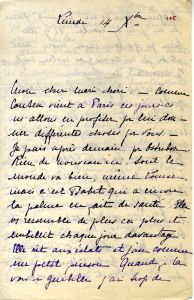 Lundi 14 Xbre
Mon cher mari chéri — comme
Cousin vient à Paris ces jours-ci
nous allons en profiter pr lui don-
ner différentes choses pr vous —
Je pars après demain pr
Rien de nouveau ici. Tout le
monde va bien, même
mais c'est Babet qui a encore
la palme en art de santé. Elle
vs ressemble de plus en plus et
embellit chaque jour davantage
Elle rit aux éclats et j'ai comme
un petit pinson. Quand je la
vois si gentille j'ai trop de